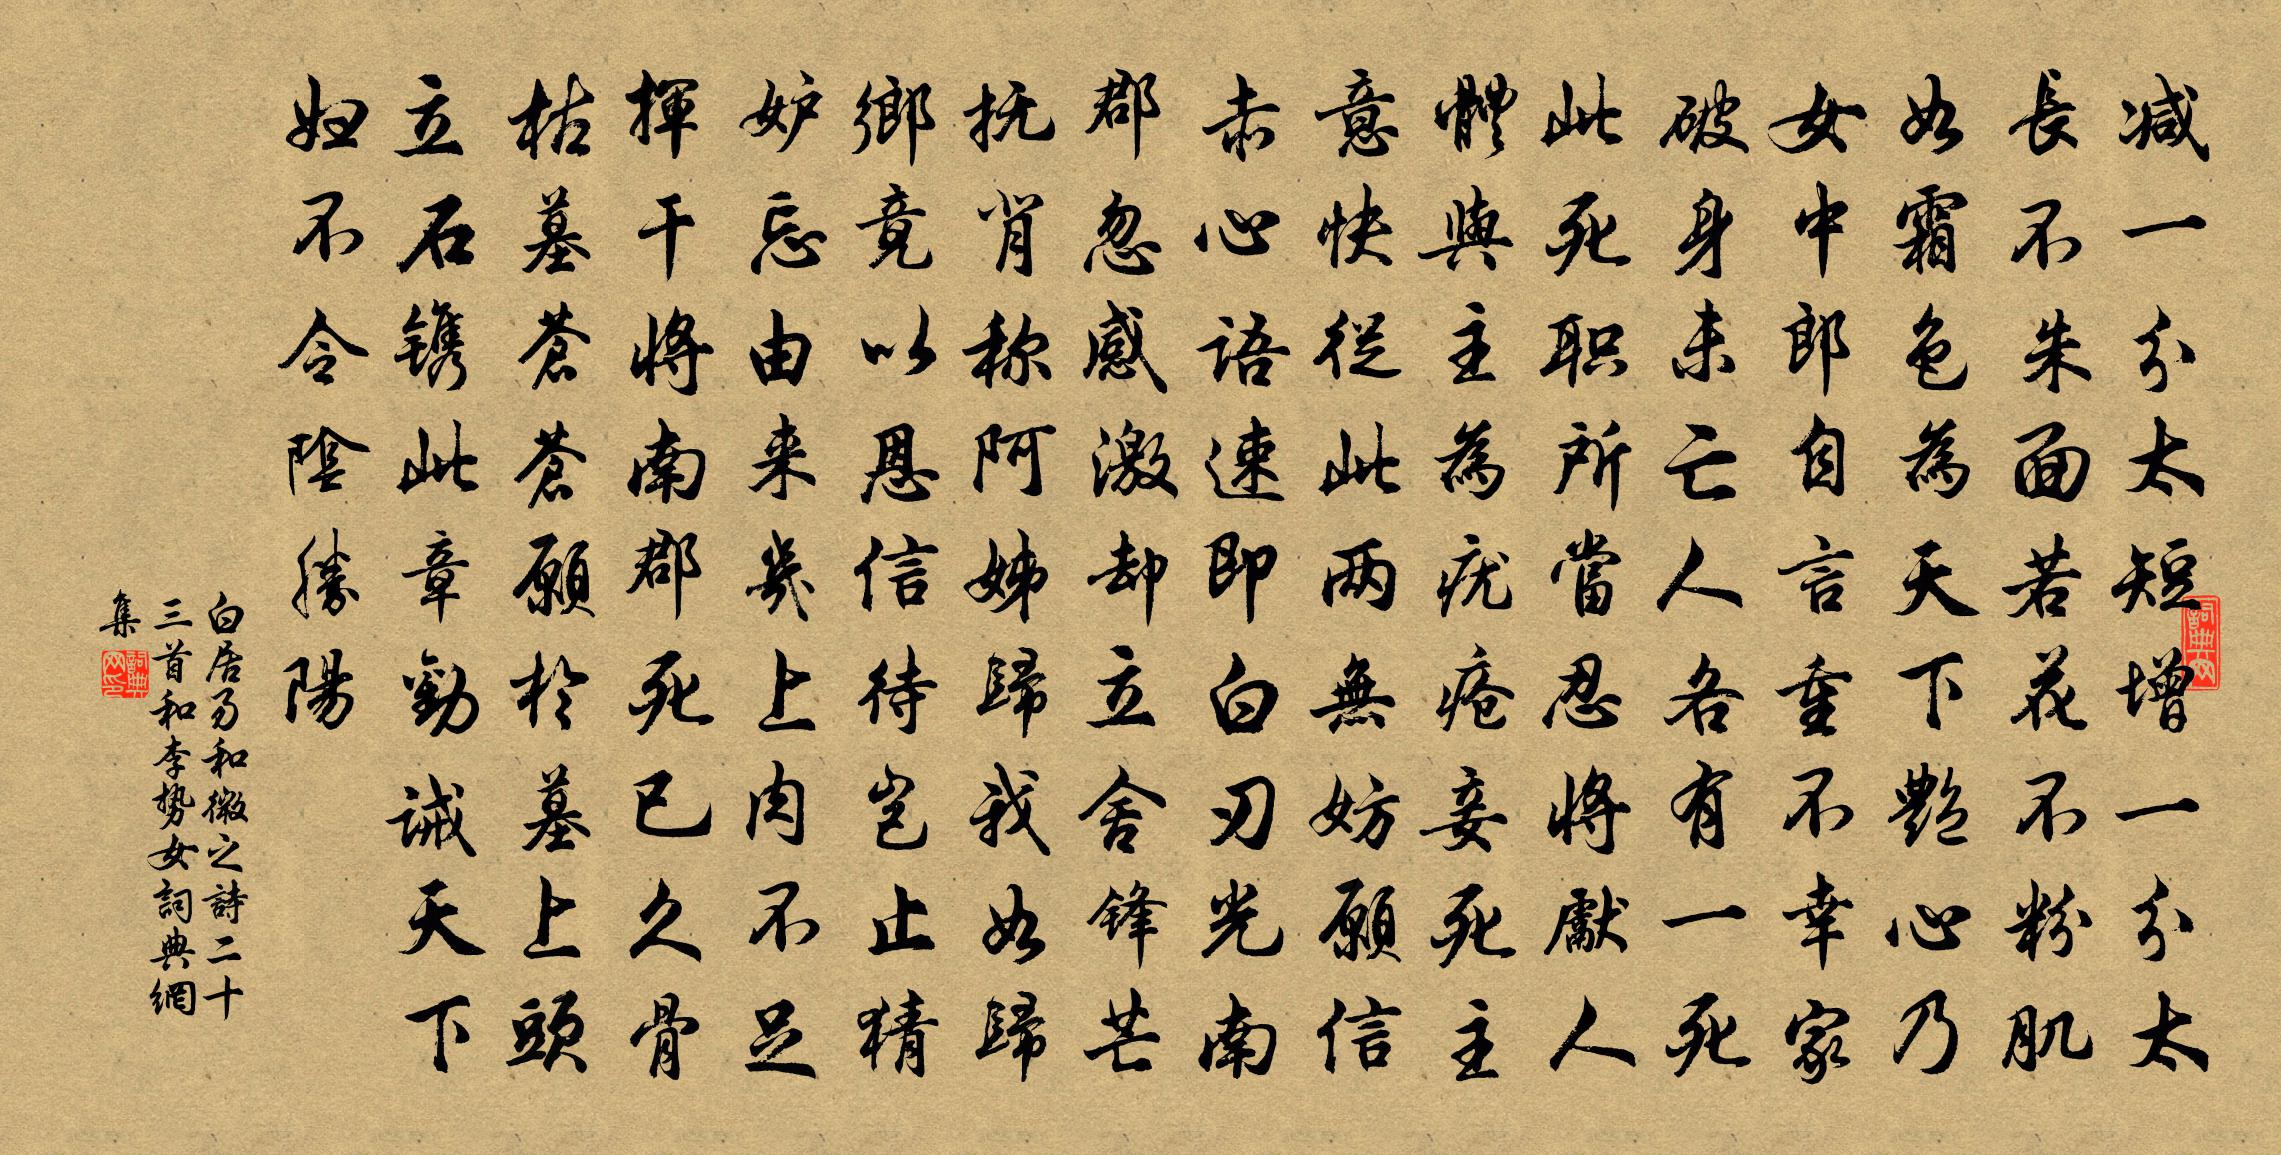 减一分太短增一分太
長不朱面若花不粉肌
如霜色為天下艷心乃
女中郎自言重不幸家
破身未亡人各有一死
此死职所當忍將獻人
體與主為疣疮妾死主
意快從此两無妨願信
赤心語速即白刃光南
郡忽感激却立舍锋芒
抚肖称阿姊歸我如歸
鄉竟以恩信待岂止猜
妒忘由来幾上肉不足
揮干將南郡死已久骨
枯墓蒼蒼願於墓上頭
立石镌此章勸誡天下
妇不令陰勝陽
白居易和微之詩二十
三首和李势女詞典網
集
詞典网
詞典网印